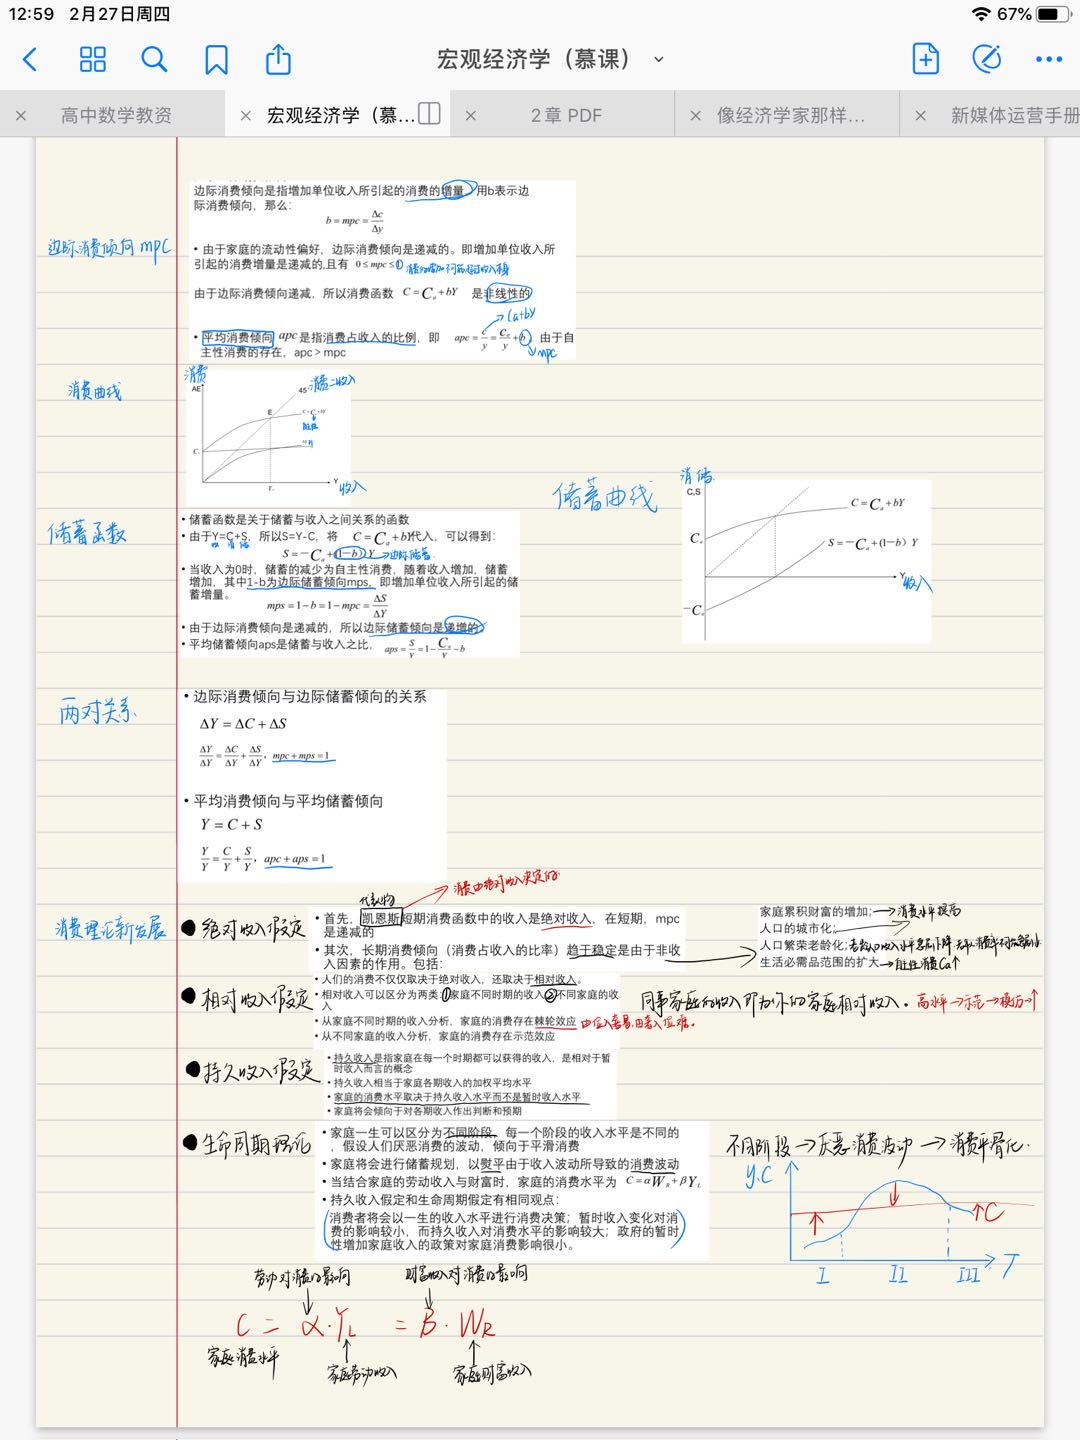 12:59 2月27日周四
67%
宏观经济学（慕课）
高中数学教资
宏观经济学（慕...
2章 PDF
像经济学家那样...
新媒体运营手册
边际消费倾向是指增加单位收入所引起的消费的增量。用b表示边
际消费倾向，那么：
b = mpc = Δc/Δy
边际消费倾向 mpc
• 由于家庭的流动性偏好，边际消费倾向是递减的。即增加单位收入所
引起的消费增量是递减的,且有 0 ≤ mpc ≤ 1
由于边际消费倾向递减，所以消费函数 C = Ca + bY 是非线性的
(a+by)
• 平均消费倾向 apc 是指消费占收入的比例，即 apc = c/y = Ca/y + b，由于自
主性消费的存在，apc > mpc
mpc
消费曲线
消费
AE
45
消费=收入
E
C.
Y
收入
Y.
储蓄曲线
消 储
C,S
C = Ca + bY
Ca
S = −Ca + (1−b) Y
Y
收入
−Ca
储蓄函数
• 储蓄函数是关于储蓄与收入之间关系的函数
• 由于Y=C+S，所以S=Y-C，将 C = Ca + bY代入，可以得到：
S = −Ca + (1−b) Y → 边际储蓄
• 当收入为0时，储蓄的减少为自主性消费，随着收入增加，储蓄
增加，其中1-b为边际储蓄倾向mps，即增加单位收入所引起的储
蓄增量。
mps = 1 − b = 1 − mpc = ΔS/ΔY
• 由于边际消费倾向是递减的，所以边际储蓄倾向是递增的。
• 平均储蓄倾向aps是储蓄与收入之比， aps = S/Y = 1 − Ca/Y − b
两对关系
• 边际消费倾向与边际储蓄倾向的关系
ΔY = ΔC + ΔS
ΔY/ΔY = ΔC/ΔY + ΔS/ΔY，mpc + mps = 1
• 平均消费倾向与平均储蓄倾向
Y = C + S
Y/Y = C/Y + S/Y，apc + aps = 1
代表人物
消费由绝对收入决定的
消费理论新发展
●绝对收入假定
• 首先，凯恩斯短期消费函数中的收入是绝对收入，在短期，mpc
是递减的
• 其次，长期消费倾向（消费占收入的比率）趋于稳定是由于非收
入因素的作用。包括：
家庭累积财富的增加；→消费水平提高
人口的城市化；
人口繁荣老龄化；
生活必需品范围的扩大→自主性消费Ca↑
●相对收入假定
• 人们的消费不仅仅取决于绝对收入，还取决于相对收入。
• 相对收入可以区分为两类：①家庭不同时期的收入②不同家庭的收
入
• 从家庭不同时期的收入分析，家庭的消费存在棘轮效应
• 从不同家庭的收入分析，家庭的消费存在示范效应
由俭入奢易，由奢入俭难。
高水平→示范→模仿→↑
●持久收入假定
• 持久收入是指家庭在每一个时期都可以获得的收入，是相对于暂
时收入而言的概念
• 持久收入相当于家庭各期收入的加权平均水平
• 家庭的消费水平取决于持久收入水平而不是暂时收入水平
• 家庭将会倾向于对各期收入作出判断和预期
●生命周期理论
• 家庭一生可以区分为不同阶段，每一个阶段的收入水平是不同的
，假设人们厌恶消费的波动，倾向于平滑消费
• 家庭将会进行储蓄规划，以熨平由于收入波动所导致的消费波动
• 当结合家庭的劳动收入与财富时，家庭的消费水平为 C = αWR + βYL
• 持久收入假定和生命周期假定有相同观点：
消费者将会以一生的收入水平进行消费决策；暂时收入变化对消
费的影响较小，而持久收入对消费水平的影响较大；政府的暂时
性增加家庭收入的政策对家庭消费影响很小。
不同阶段→厌恶消费波动→消费平滑化.
y.C
C
I II III T
劳动对消费的影响
财富收入对消费的影响
C = α·YL = B·WR
家庭消费水平
家庭劳动收入
家庭财富收入